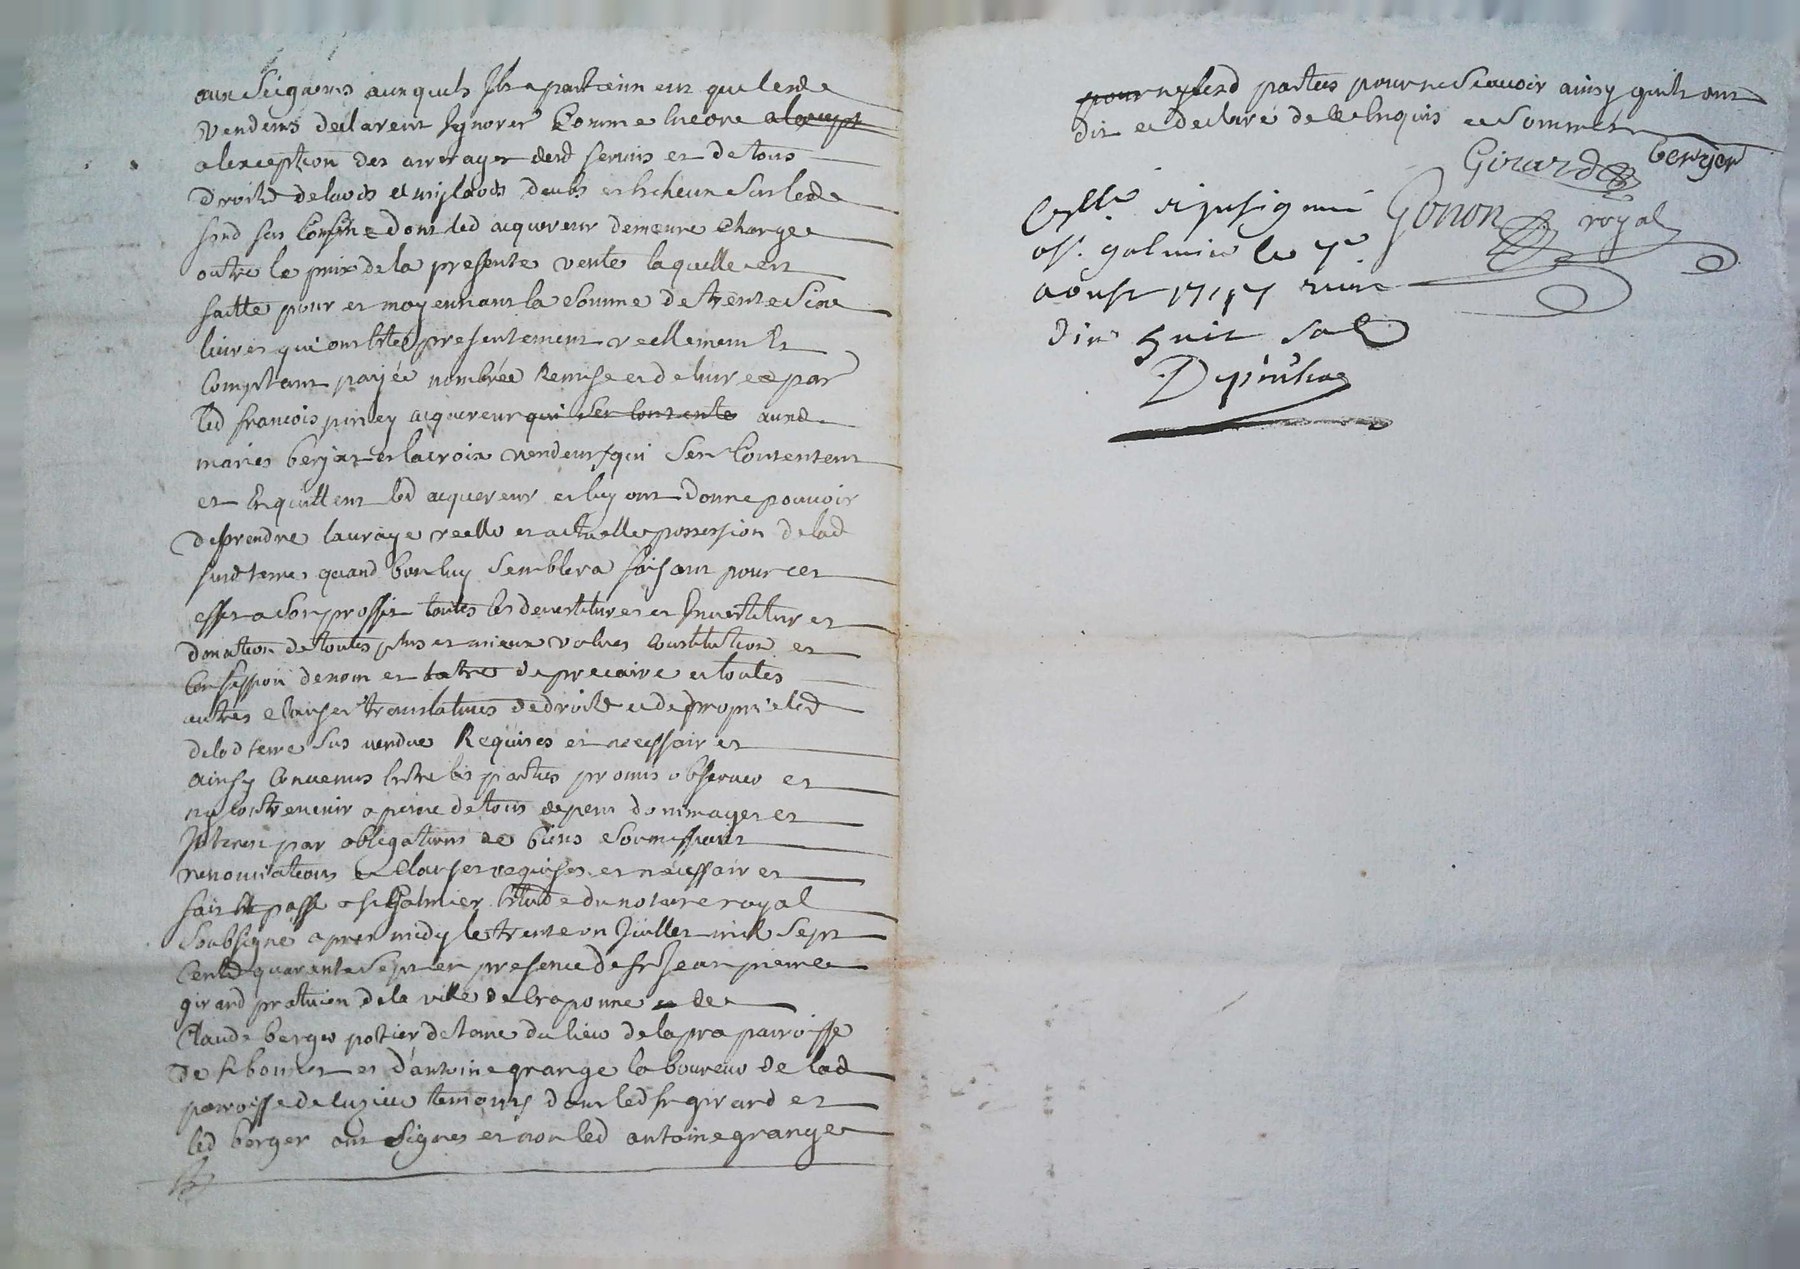 aux Seigneurs auxquels Ils apartiennent que lesd
vendeurs declarent Ignorer Comme encore
a lexception des arrerages desd servis et de tous
droits de laods et mylaods deubs et hcheux sur led
fond sus Confiné dont led acquereur demeure charge
outre le prix de la presente vente laquelle est
faitte pour et moyennant la somme de trente Six
livres qui ont Eté presentement reellement Et
Comptant payée nombrée Remise et delivree par
led francois pirley acquereur qui sen contente auxd
mariés berjat et lacroix vendeurs qui sen Contentent
et Enquittent led acquereur et luy ont donné pouvoir
de prendre la vraye reelle et actuelle possession de lad
susd terre quand bon luy semblera faisant pour cet
effet a son proffit toutes les devestitures et Investitures
donation de toutes plus et mieux values constitution et
Confession de nom et tiltre de precaire et toutes
autres clauses translatives de droits et de proprieted
de lad terre sus vendue Requises et necessaires
ainsy Convenus Entre les parties promis observer et
ny contrevenir a peine de tous depens dommages et
Interest par obligations de biens soumissions
renonciations et Clauses requises et necessaires
fait Et passé a st Galmier Etude du notaire royal
soubsigné apres midy le trente un Juillet mil Sept
Cents quarante Sept en presence de sr Jean pierre
girard praticien de la ville de Craponne et de
Claude berger potier de terre du lieu de la pra parroisse
de st bonnet et d'antoine grange laboureur de lad
parroisse de luzieu temoins dont led sr girard et
led berger ont Signés et non led antoine grange
pour ny lesd parties pour ne Scavoir ainsy quils ont
dit et declaré de ce Enquis et Sommés
Girard berger
Gonon royal
st. galmier le 7e
aoust 1747 reçu
dix huit sols